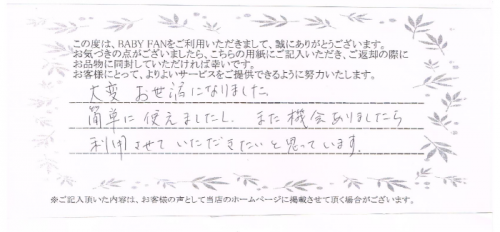 この度は、BABY FANをご利用いただきまして、誠にありがとうございます。
お気づきの点がございましたら、こちらの用紙にご記入いただき、ご返却の際に
お品物に同封していただければ幸いです。
お客様にとって、よりよいサービスをご提供できるように努力いたします。
大変 お世話になりました
簡単に使えましたし、また機会ありましたら
利用させていただきたいと思っています。
※ご記入頂いた内容は、お客様の声として当店のホームページに掲載させて頂く場合がございます。